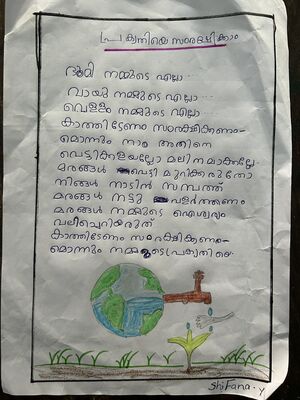 പ്രകൃതിയെ സംരക്ഷിക്കാം
ഭൂമി നമ്മുടെ എല്ലാം....
വായു നമ്മുടെ എല്ലാം....
വെള്ളം നമ്മുടെ എല്ലാം....
കാത്തിടേണം സംരക്ഷിക്കണം-
മൊന്നും നാം അതിനെ
വെട്ടിക്കളയല്ലേ മലിനമാക്കല്ലേ-
മരങ്ങൾ വെട്ടി മുറിക്കരുതേ
നിങ്ങൾ നാടിൻ സമ്പത്ത്
മരങ്ങൾ നട്ടു വളർത്തണം
മരങ്ങൾ നമ്മുടെ ഐശ്വര്യം
വലിച്ചെറിയരുത്
കാത്തിടേണം സംരക്ഷിക്കണം-
മൊന്നും നമ്മുടെ പ്രകൃതിയെ
Shifana.y